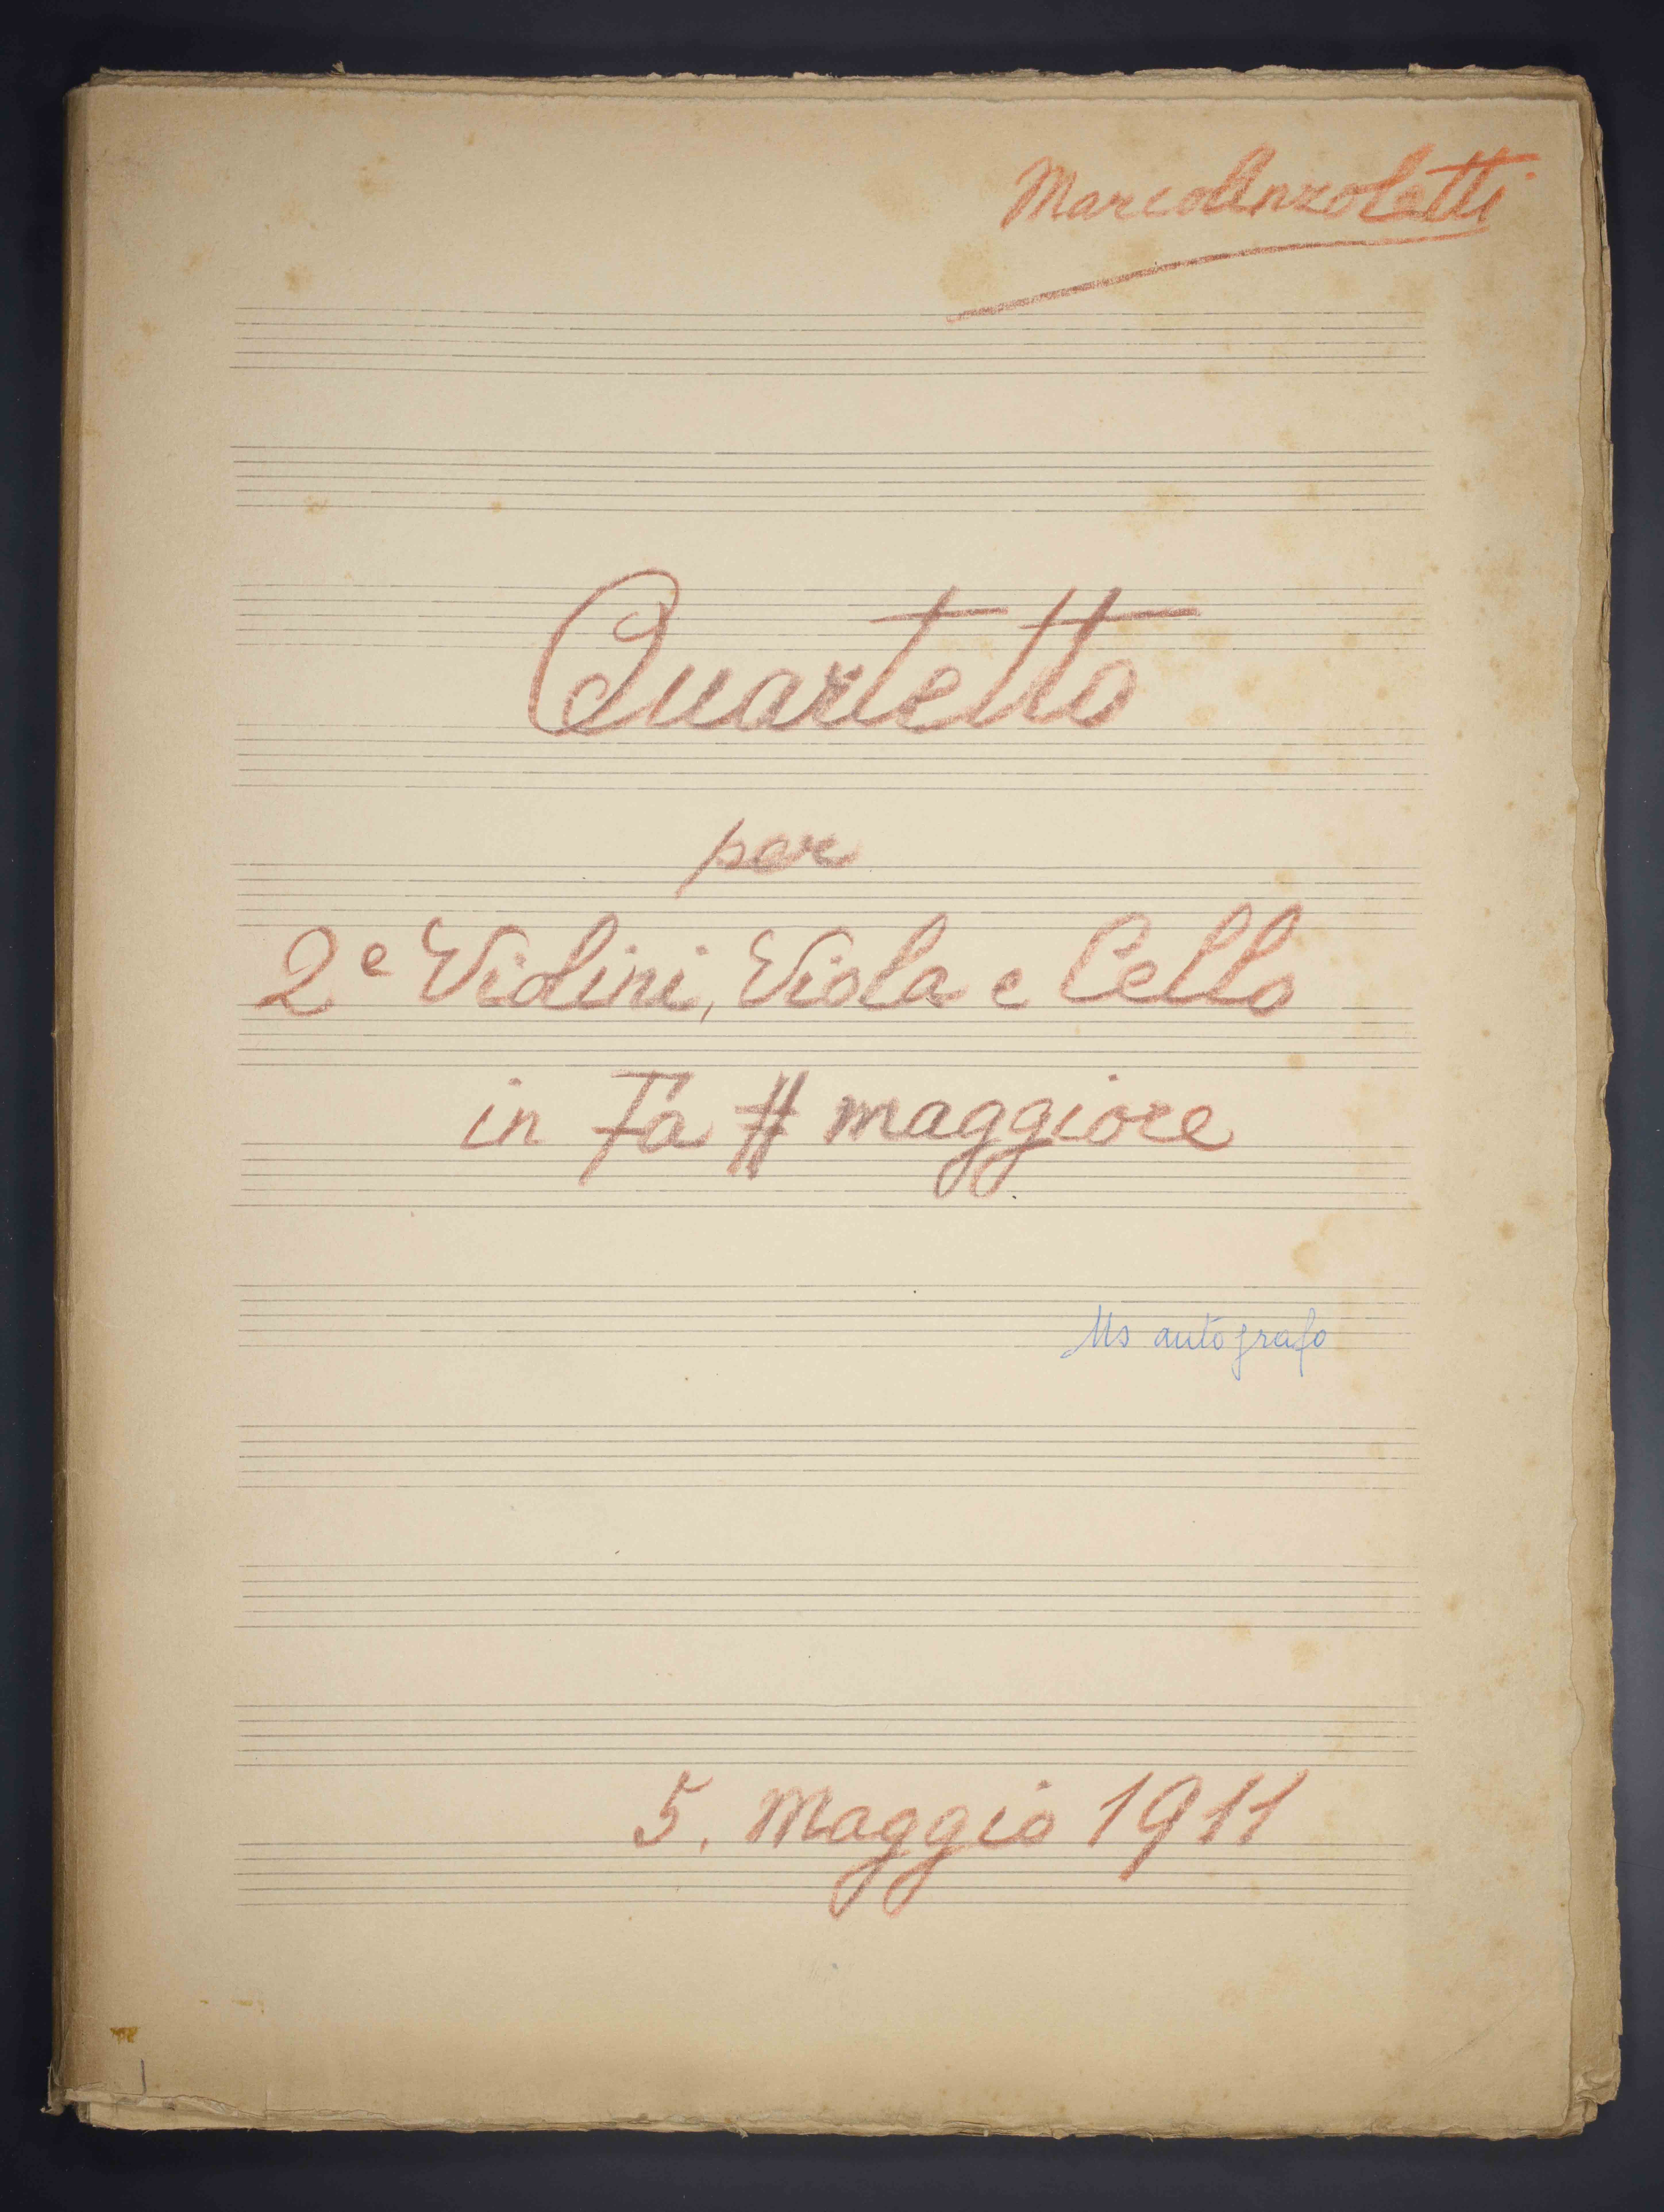 Marco Anzoletti
Quartetto
per
2e Violini, Viola e Cello
in Fa # maggiore
Ms autografo
5. Maggio 1911